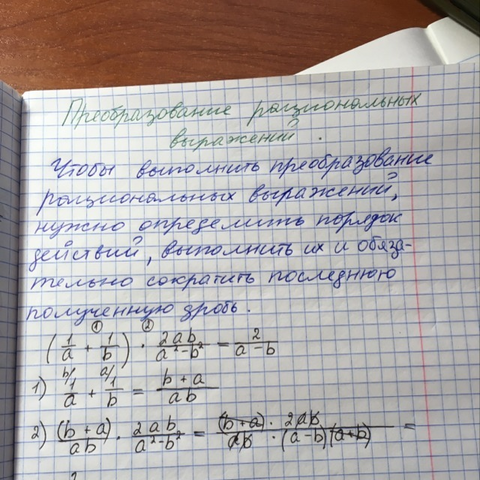 Преобразование рациональных
выражений.
Чтобы выполнить преобразование
рациональных выражений,
нужно определить порядок
действий, выполнить их и обяза-
тельно сократить последнюю
полученную дробь.
(1/a + 1/b) · 2ab/(a²-b²) = 2/(a-b)
1) 1/a + 1/b = (b+a)/(ab)
2) (b+a)/(ab) · 2ab/(a²-b²) = ((b+a) · 2ab)/(ab · (a-b)(a+b)) =